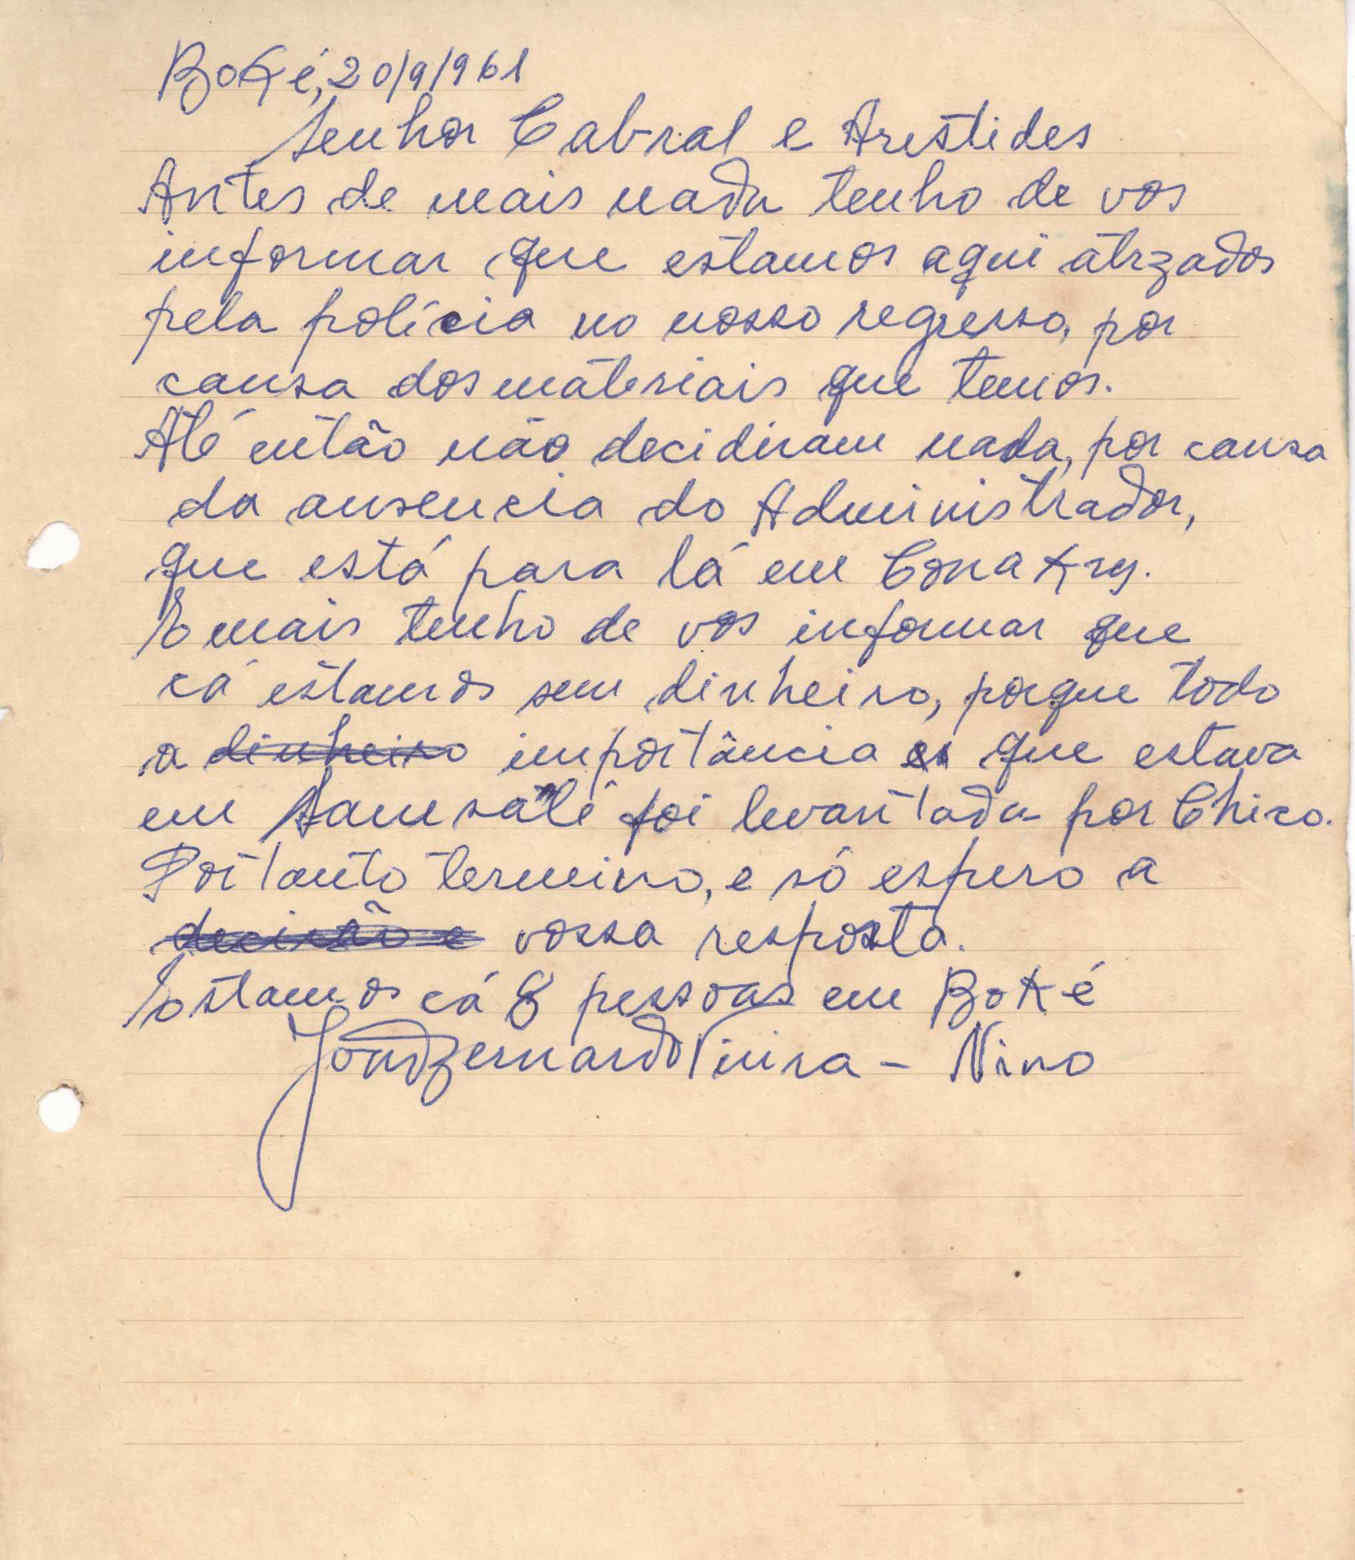 Boké, 20/9/961
Senhor Cabral e Arestides
Antes de mais nada tenho de vos
informar que estamos aqui atrzados
pela polícia no nosso regresso, por
causa dos materiais que temos.
Até então não decidiram nada, por causa
da ausencia do Administrador,
que está para lá em Conakry.
E mais tenho de vos informar que
cá estamos sem dinheiro, porque todo
a dinheiro importância que estava
em Samsalé foi levantada por Chico.
Portanto termino, e só espero a
decisão e vossa resposta.
Estamos cá 8 pessoas em Boké
João Bernardo Vieira - Nino